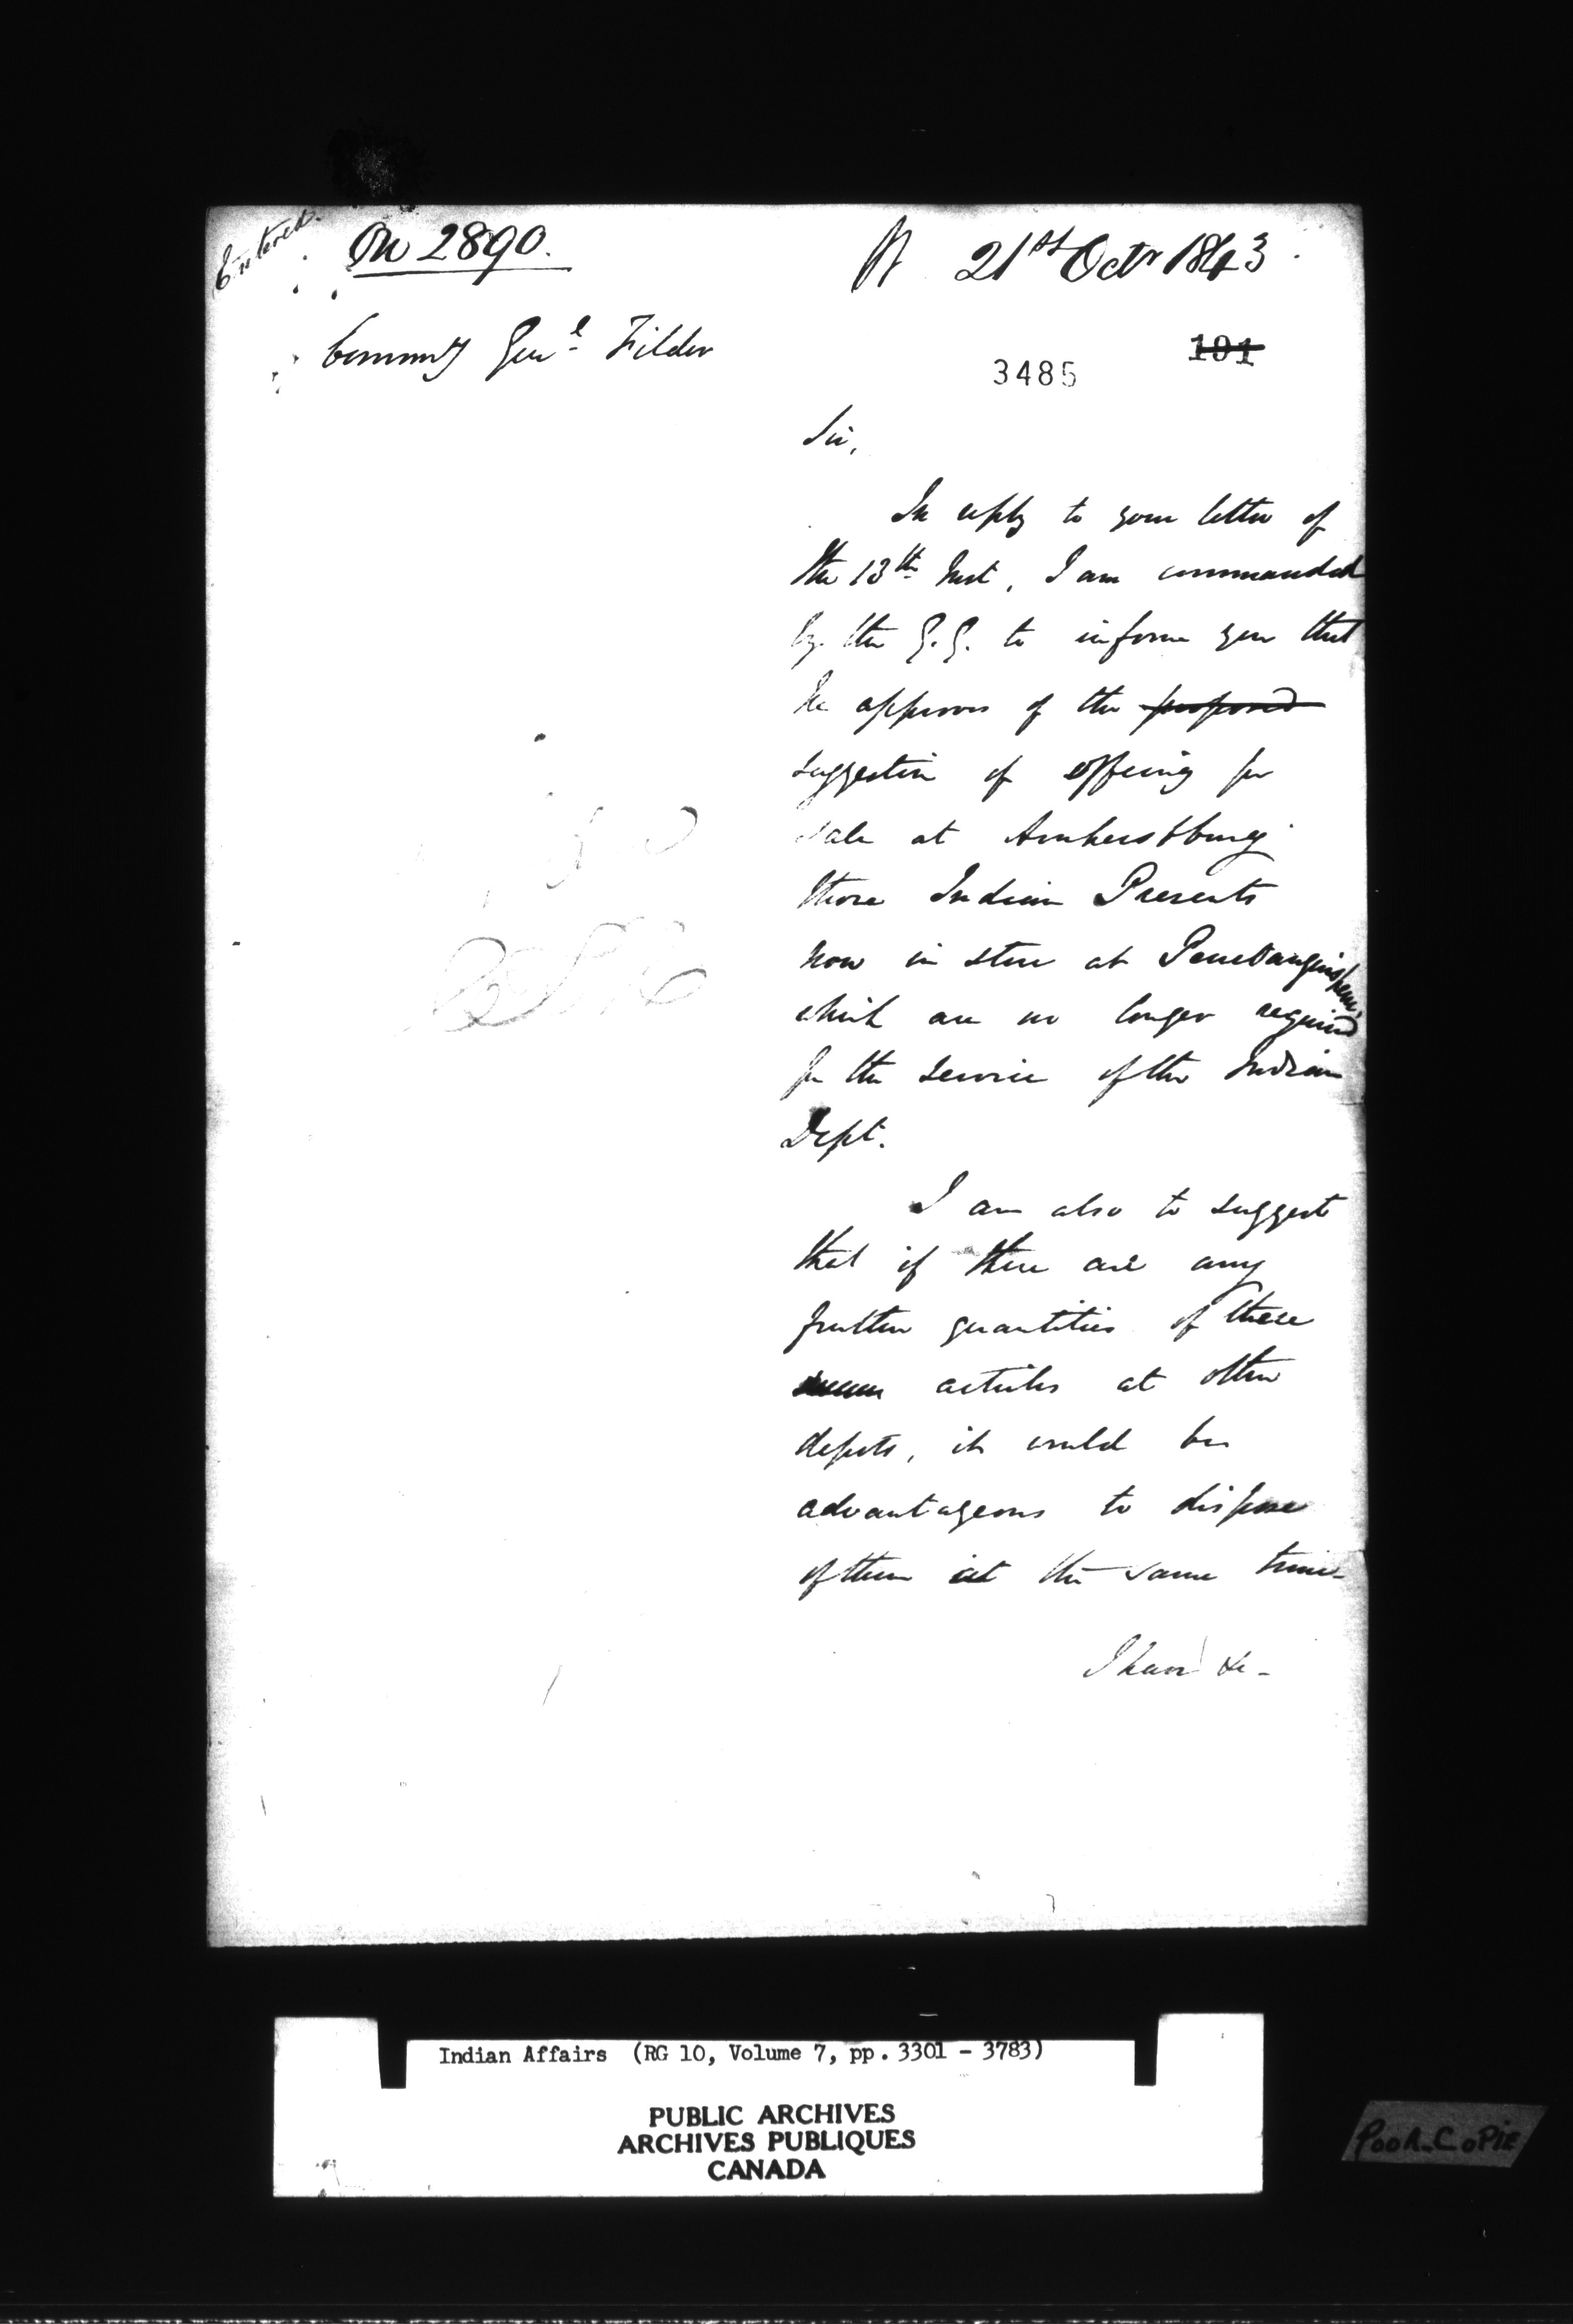 Entered.
On 2890.
21st Octr 1843
Commy Genl Filder
101
3485
Sir,
In reply to your letter of
the 13th Inst, I am commanded
by the G.G. to inform you that
he approves of the proposed
suggestion of offering for
sale at Amherstburg
those Indian Presents
now in store at Penetanguishene,
which are no longer required
for the service of the Indian
Dept.
I am also to suggest
that if there are any
further quantities of these
articles at other
depots, it would be
advantageous to dispose
of them at the same time.
I have &c-
Indian Affairs (RG 10, Volume 7, pp. 3301 - 3783)
PUBLIC ARCHIVES
ARCHIVES PUBLIQUES
CANADA
POOR COPIE